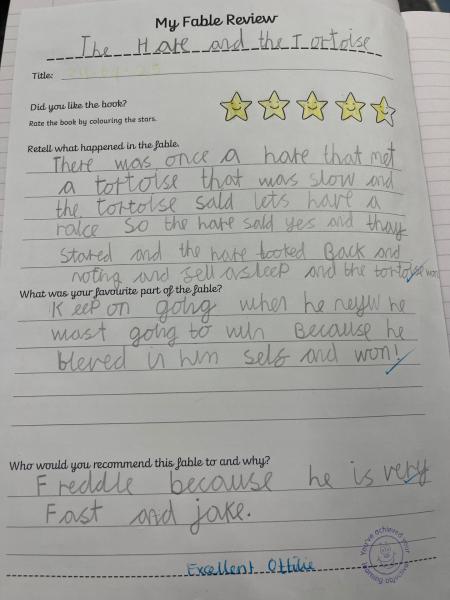 My Fable Review
The Hare and the Tortoise
Title:
Did you like the book?
Rate the book by colouring the stars.
Retell what happened in the fable.
There was once a hare that met
a tortoise that was slow and
the tortoise said lets have a
raice So the hare said yes and thay
stared and the hare looked Back and
noting and fell asleep and the tortoise won
What was your favourite part of the fable?
Keep on going when he neyw he
wast going to win Because he
bleved in him self and won!
Who would you recommend this fable to and why?
Freddie because he is very
Fast and jake.
Excellent Ottilie
You've achieved your learning objective